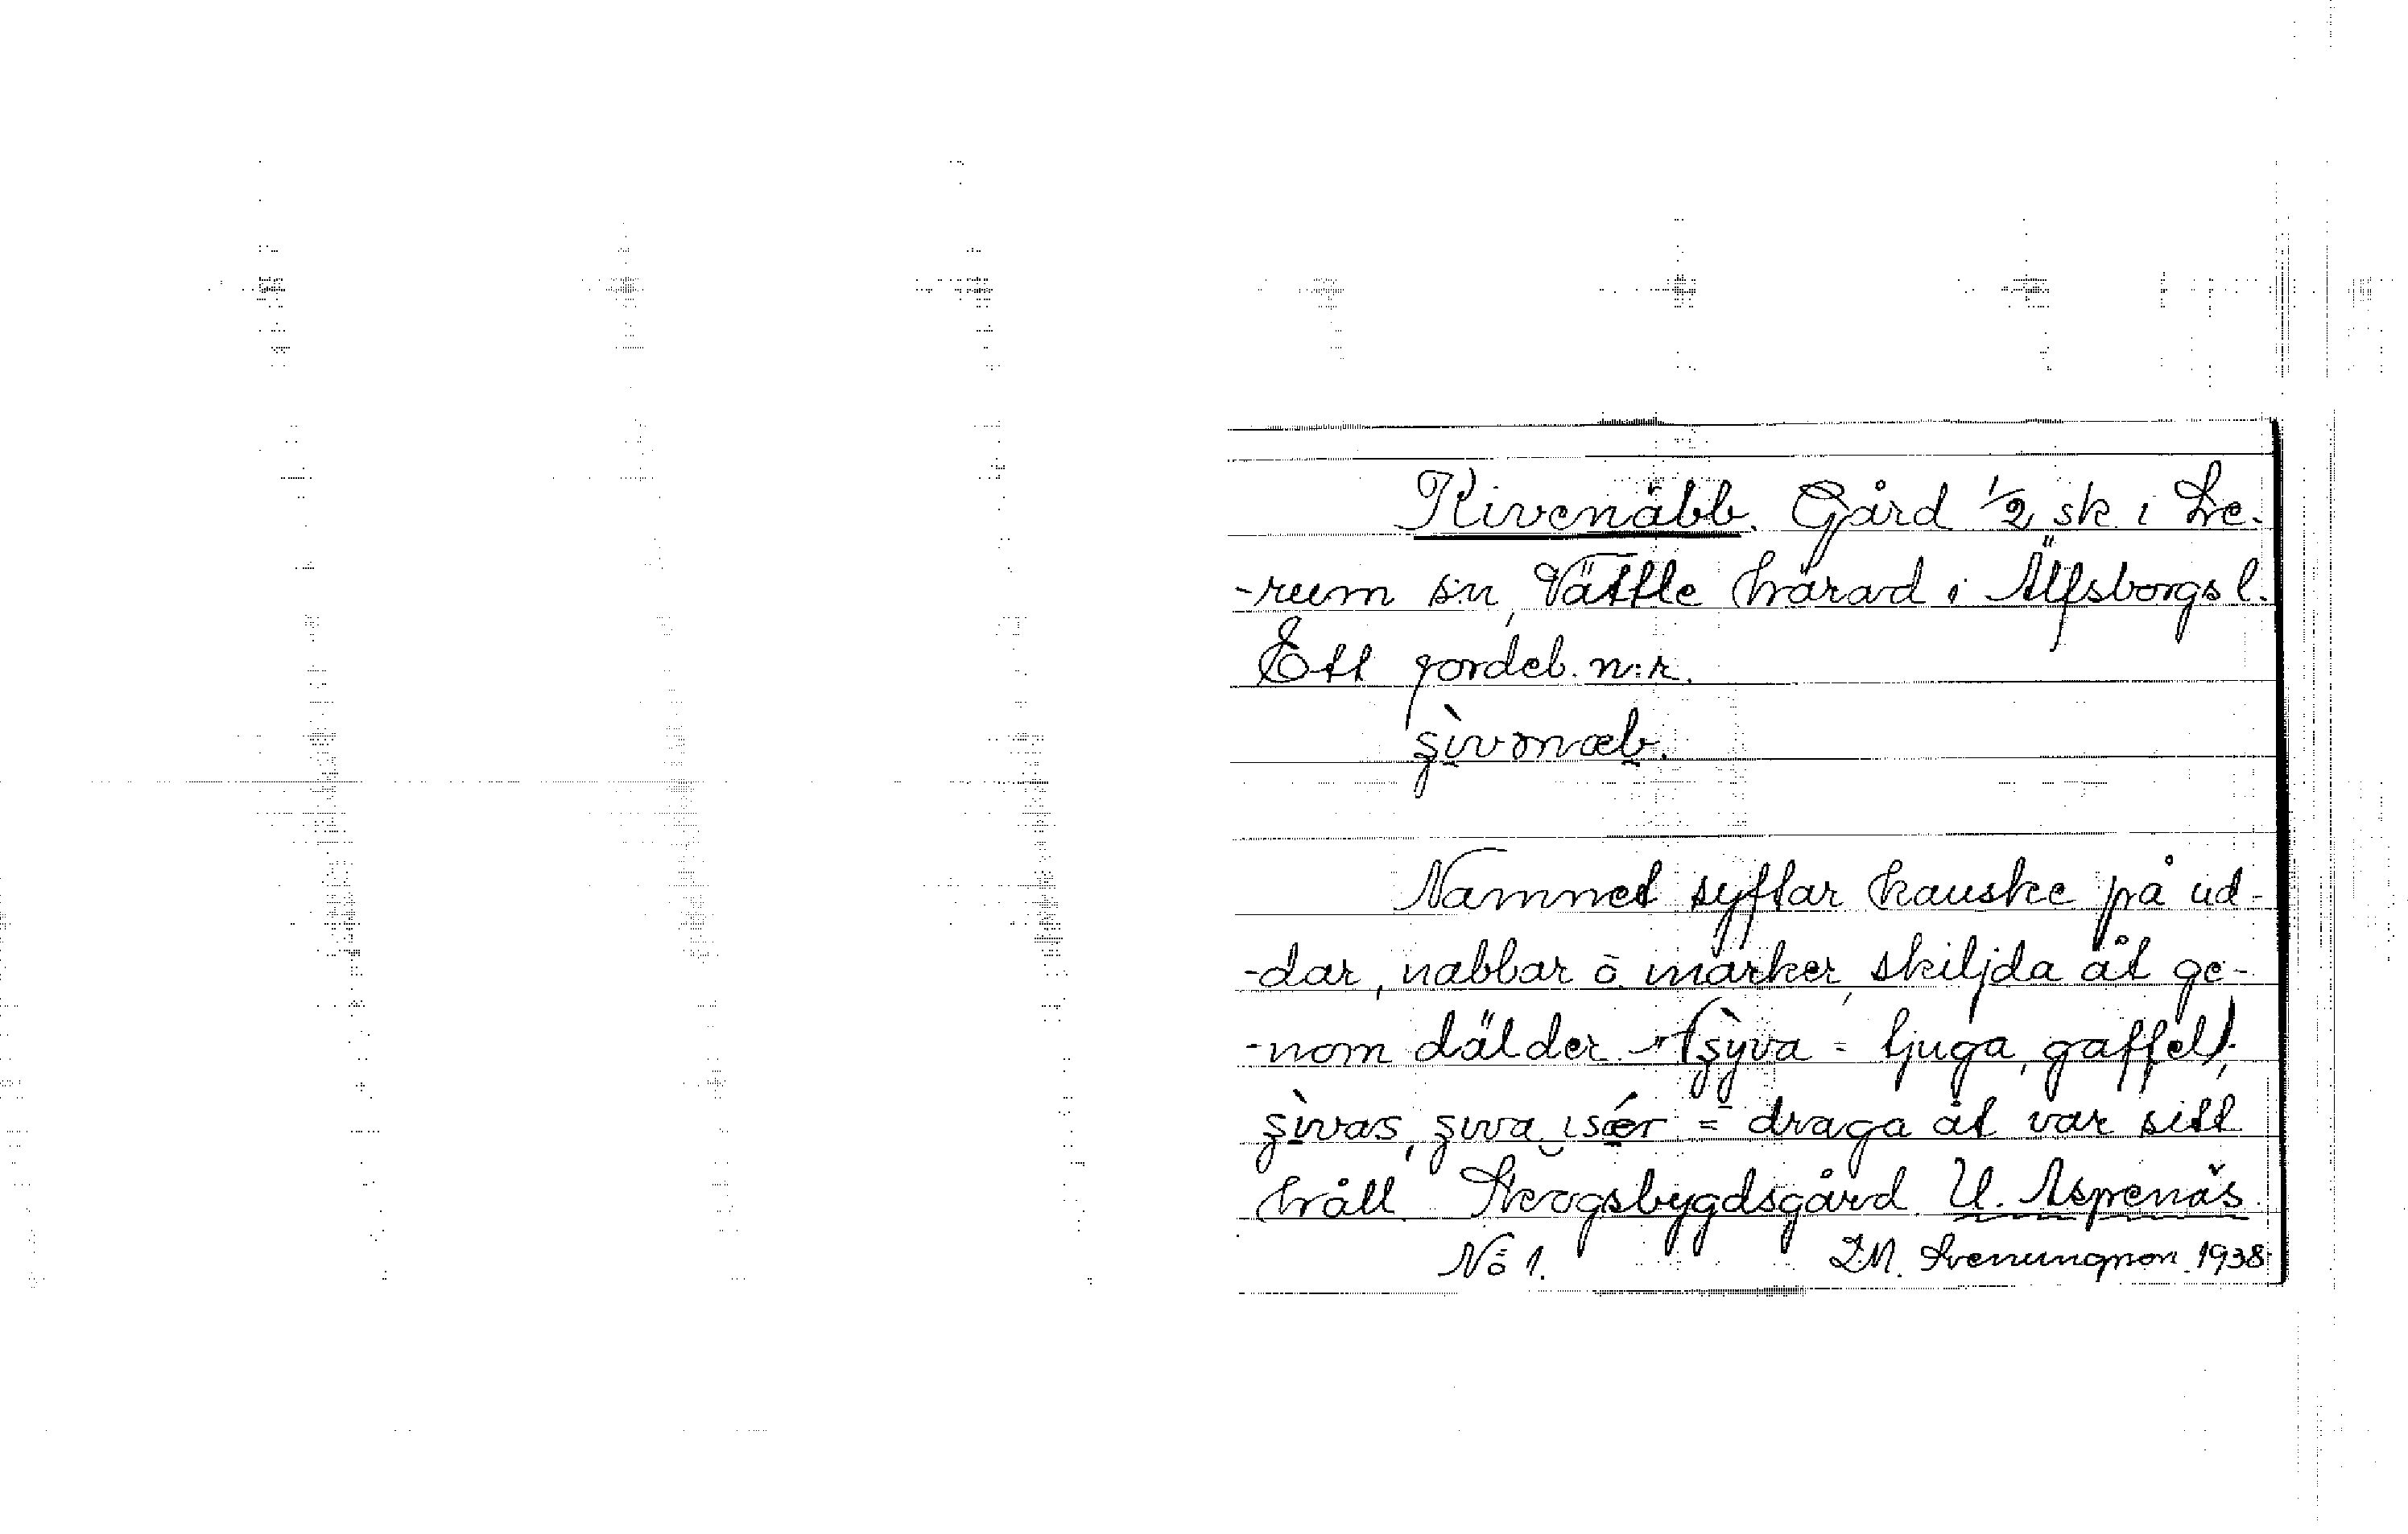 Kivenäbb. Gård 1/2 sk. i Le-
-rum sn, Vättle härad i Älfsborgs l.
Ett jordeb. n:r.
Namnet syftar kanske på ud-
-dar, nabbar o. marker, skiljda åt ge-
-nom dälder. (şỳva = tjuga, gaffel),
şìvas, şıva ısǽr = draga åt var sitt
håll. Skogsbygdsgård. U. Aspenäs.
No 1. I.M. Svenungson 1938